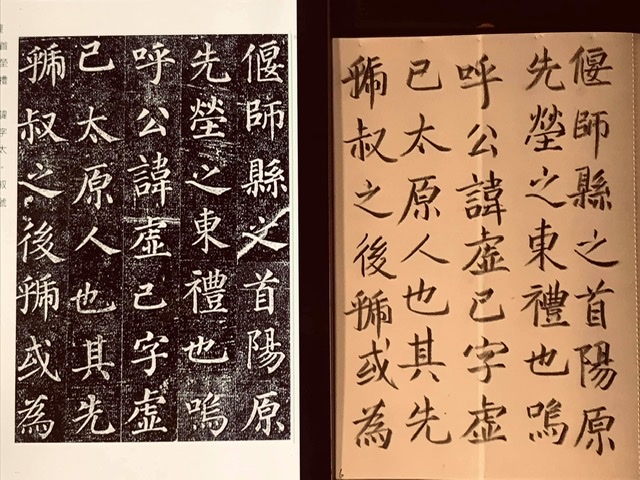 偃師縣之首陽原
先塋之東禮也嗚
呼公諱虛己字虛
己太原人也其先
虢叔之後虢或為
偃師縣之首陽原
先塋之東禮也嗚
呼公諱虛己字虛
己太原人也其先
虢叔之後虢或為